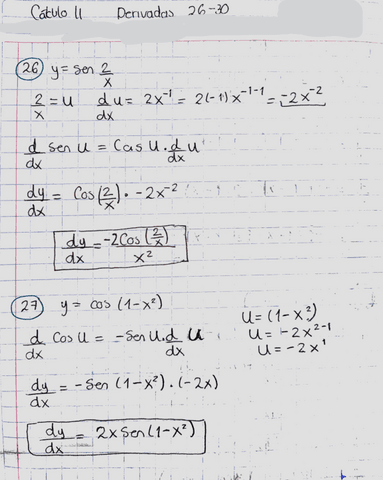 Cálculo II Derivadas 26-30
26 y = sen 2/x
2/x = u d/dx u = 2x⁻¹ = 2(-1)x⁻¹⁻¹ = -2x⁻²
d/dx sen u = Cos u · d/dx u
dy/dx = Cos(2/x) · -2x⁻²
dy/dx = -2Cos(2/x)/x²
27 y = cos (1-x²)
u = (1-x²)
d/dx Cos u = -Sen u · d/dx u
u = -2x²⁻¹
u = -2x¹
dy/dx = -Sen (1-x²) · (-2x)
dy/dx = 2x Sen (1-x²)